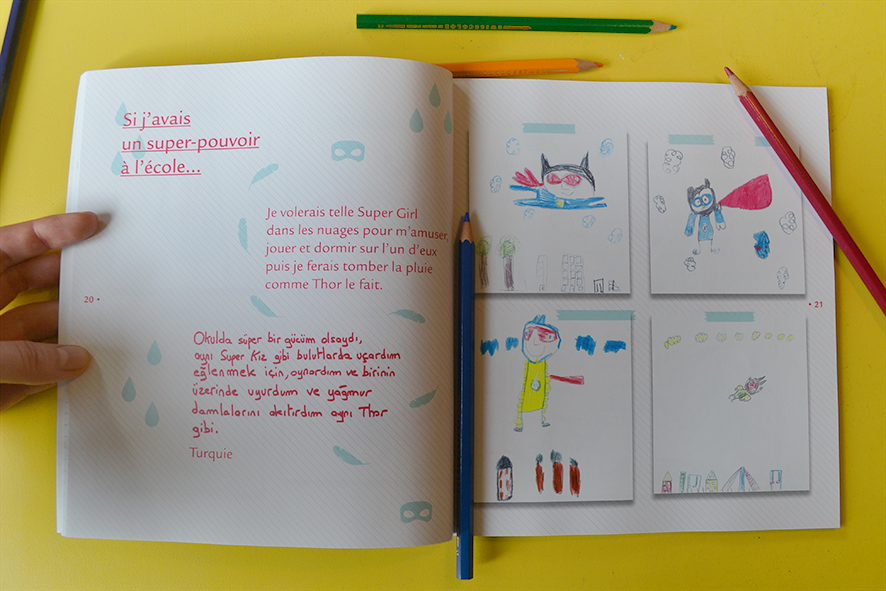 Si j'avais
un super-pouvoir
à l'école...
Je volerais telle Super Girl
dans les nuages pour m'amuser,
jouer et dormir sur l'un d'eux
puis je ferais tomber la pluie
comme Thor le fait.
20 •
Okulda süper bir gücüm olsaydı,
aynı Super Kız gibi bulutlarda uçardım
eğlenmek için, oynardım ve birinin
üzerinde uyurdum ve yağmur
damlalarını akıtırdım aynı Thor
gibi.
Turquie
• 21